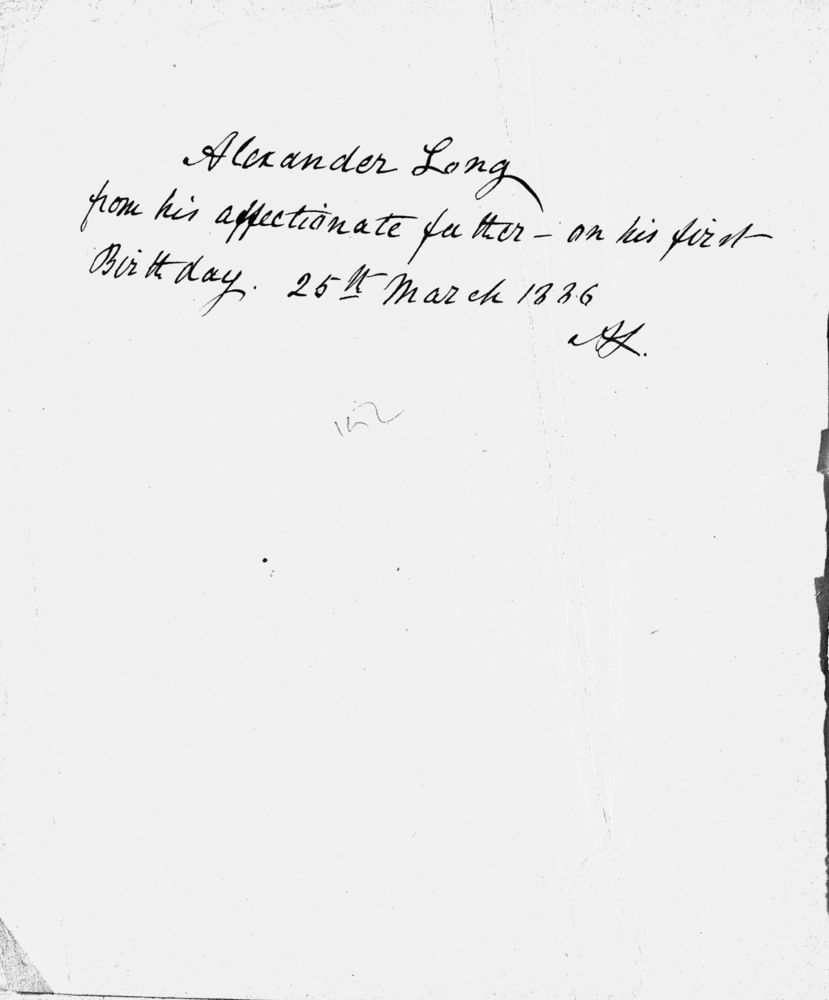 Alexander Long
from his affectionate father – on his first
Birthday. 25th March 1886
AL.